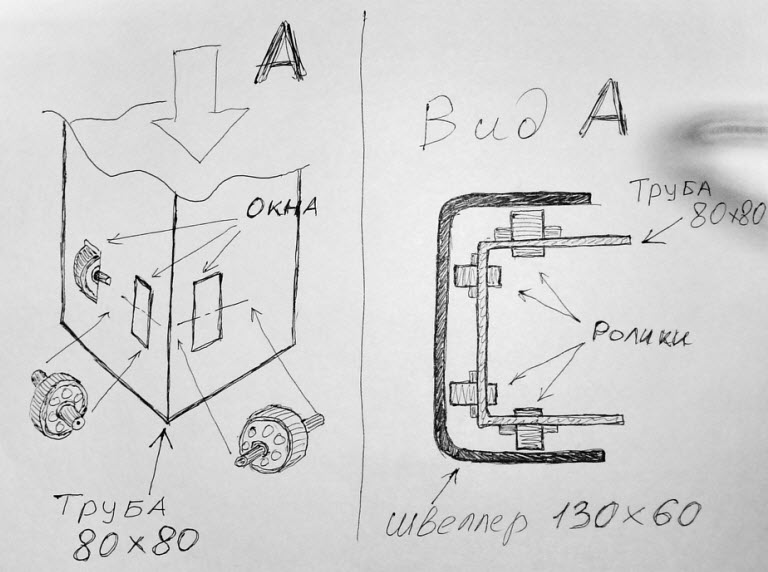 А
ОКНА
ТРУБА
80х80
Вид А
ТРУБА
80х80
Ролики
швеллер 130х60